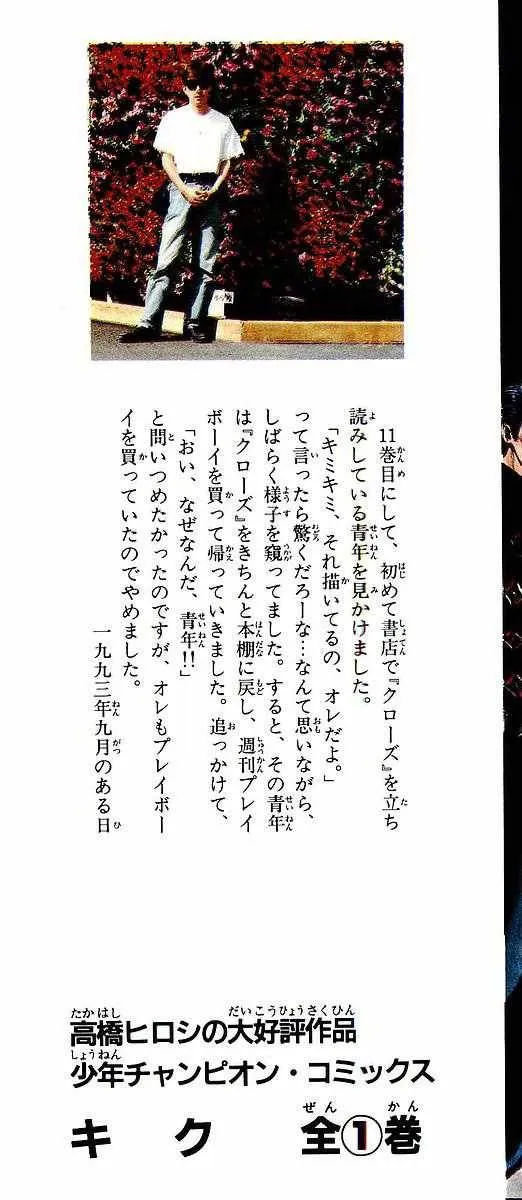 11巻目にして、初めて書店で『クローズ』を立ち
読みしている青年を見かけました。
「キミキミ、それ描いてるの、オレだよ。」
って言ったら驚くだろーな…なんて思いながら、
しばらく様子を窺ってました。すると、その青年
は『クローズ』をきちんと本棚に戻し、週刊プレイ
ボーイを買って帰っていきました。追っかけて、
「おい、なぜなんだ、青年!!」
と問いつめたかったのですが、オレもプレイボー
イを買っていたのでやめました。
一九九三年九月のある日
高橋ヒロシの大好評作品
少年チャンピオン・コミックス
キク 全①巻